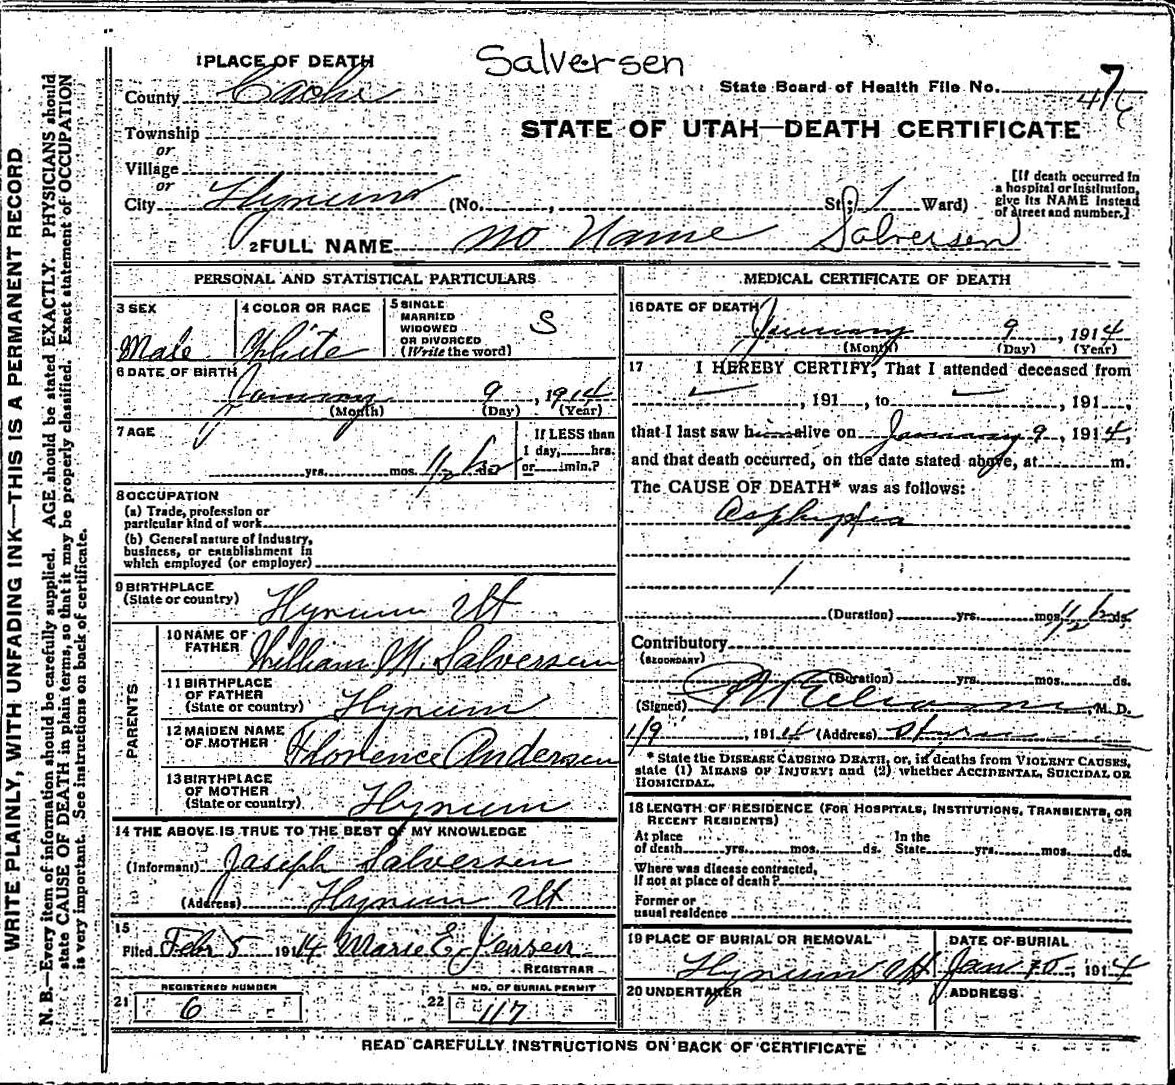 Salversen
1 PLACE OF DEATH
County Cache
State Board of Health File No.
Township
or
Village
or
City Hyrum (No. , St; 1 Ward)
STATE OF UTAH—DEATH CERTIFICATE
[If death occurred in a hospital or institution, give its NAME instead of street and number.]
2 FULL NAME no Name Salversen
PERSONAL AND STATISTICAL PARTICULARS
3 SEX
Male
4 COLOR OR RACE
White
5 SINGLE
MARRIED
WIDOWED
OR DIVORCED
(Write the word)
S
6 DATE OF BIRTH
January 9, 1914
(Month) (Day) (Year)
7 AGE
yrs. mos. 1/2 ds.
If LESS than
1 day, hrs.
or min.?
8 OCCUPATION
(a) Trade, profession or
particular kind of work
(b) General nature of industry,
business, or establishment in
which employed (or employer)
9 BIRTHPLACE
(State or country) Hyrum Ut
PARENTS
10 NAME OF
FATHER William M. Salversen
11 BIRTHPLACE
OF FATHER
(State or country) Hyrum
12 MAIDEN NAME
OF MOTHER Florence Andersen
13 BIRTHPLACE
OF MOTHER
(State or country) Hyrum
14 THE ABOVE IS TRUE TO THE BEST OF MY KNOWLEDGE
(Informant) Joseph Salversen
(Address) Hyrum Ut
15
Filed Feb 5 1914 Marie E Jensen
REGISTRAR
21 REGISTERED NUMBER
6
22 NO. OF BURIAL PERMIT
117
MEDICAL CERTIFICATE OF DEATH
16 DATE OF DEATH
January 9, 1914
(Month) (Day) (Year)
17 I HEREBY CERTIFY, That I attended deceased from
, 191 , to , 191 ,
that I last saw him alive on January 9, 1914,
and that death occurred, on the date stated above, at m.
The CAUSE OF DEATH* was as follows:
Asphyxia
(Duration) yrs. mos. 1/2 ds.
Contributory
(SECONDARY)
(Duration) yrs. mos. ds.
(Signed) , M. D.
1/9, 1914 (Address)
* State the DISEASE CAUSING DEATH, or, in deaths from VIOLENT CAUSES,
state (1) MEANS OF INJURY; and (2) whether ACCIDENTAL, SUICIDAL OR
HOMICIDAL.
18 LENGTH OF RESIDENCE (FOR HOSPITALS, INSTITUTIONS, TRANSIENTS, OR
RECENT RESIDENTS)
At place In the
of death yrs. mos. ds. State yrs. mos. ds.
Where was disease contracted,
if not at place of death?
Former or
usual residence
19 PLACE OF BURIAL OR REMOVAL
Hyrum Ut
DATE OF BURIAL
Jan 10, 1914
20 UNDERTAKER
ADDRESS
READ CAREFULLY INSTRUCTIONS ON BACK OF CERTIFICATE
WRITE PLAINLY, WITH UNFADING INK—THIS IS A PERMANENT RECORD
N. B.—Every item of information should be carefully supplied. AGE should be stated EXACTLY. PHYSICIANS should
state CAUSE OF DEATH in plain terms, so that it may be properly classified. Exact statement of OCCUPATION
is very important. See instructions on back of certificate.